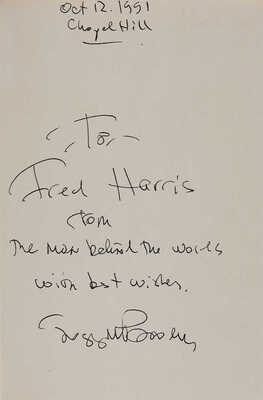 Oct 12. 1991
Chapel Hill
To,
Fred Harris
from
The man behind the words
with best wishes.